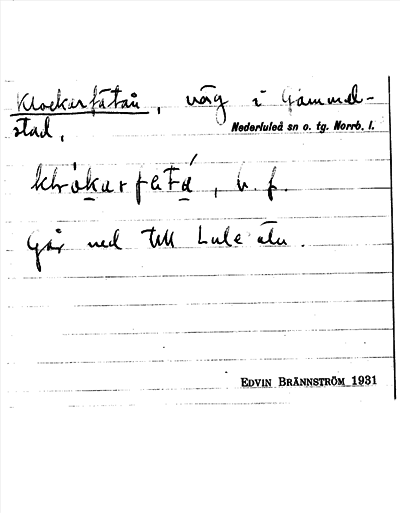 Klockarfatan, väg i Gammel-
stad.
Nederluleå sn o. tg. Norrb. l.
b. f.
Går ned till Lule älv.
EDVIN BRÄNNSTRÖM 1931